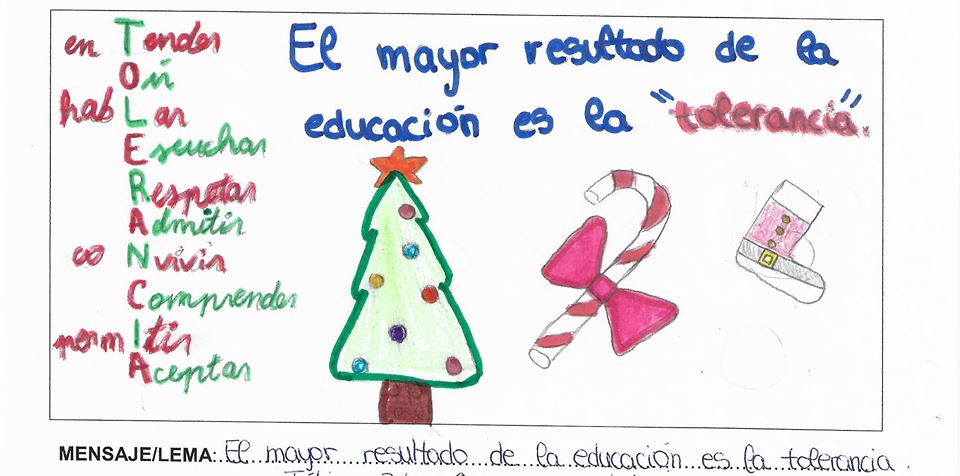 enTender
Oír
habLar
Escuchar
Respetar
Admitir
coNvivir
Comprender
permItir
Aceptar
El mayor resultado de la
educación es la "tolerancia".
MENSAJE/LEMA: El mayor resultado de la educación es la tolerancia.